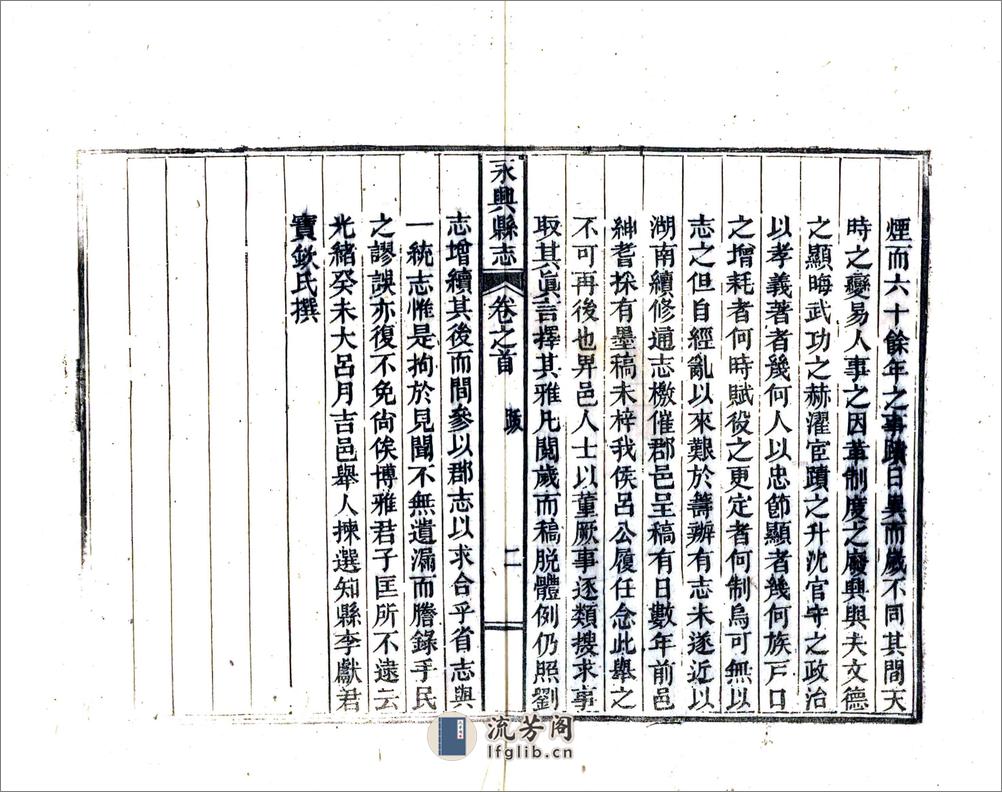 煙而六十餘年之事蹟日異而歲不同其間天
時之變易人事之因革制度之廢興與夫文德
之顯晦武功之赫濯宦蹟之升沈官守之政治
以孝義著者幾何人以忠節顯者幾何族戶口
之增耗者何時賦役之更定者何制烏可無以
志之但自經亂以來艱於籌辦有志未遂近以
湖南續修通志檄催郡邑呈稿有日數年前邑
紳耆採有墨稿未梓我侯呂公履任念此舉之
不可再後也畀邑人士以董厥事逐類搜求事
取其眞言擇其雅凡閱歲而稿脱體例仍照劉
永興縣志 卷之首 跋 二
志增續其後而間參以郡志以求合乎省志與
一統志惟是拘於見聞不無遺漏而謄錄手民
之謬誤亦復不免尙俟博雅君子匡所不逮云
光緒癸未大呂月吉邑舉人揀選知縣李獻君
寶欽氏撰
流芳阁
lfglib.cn